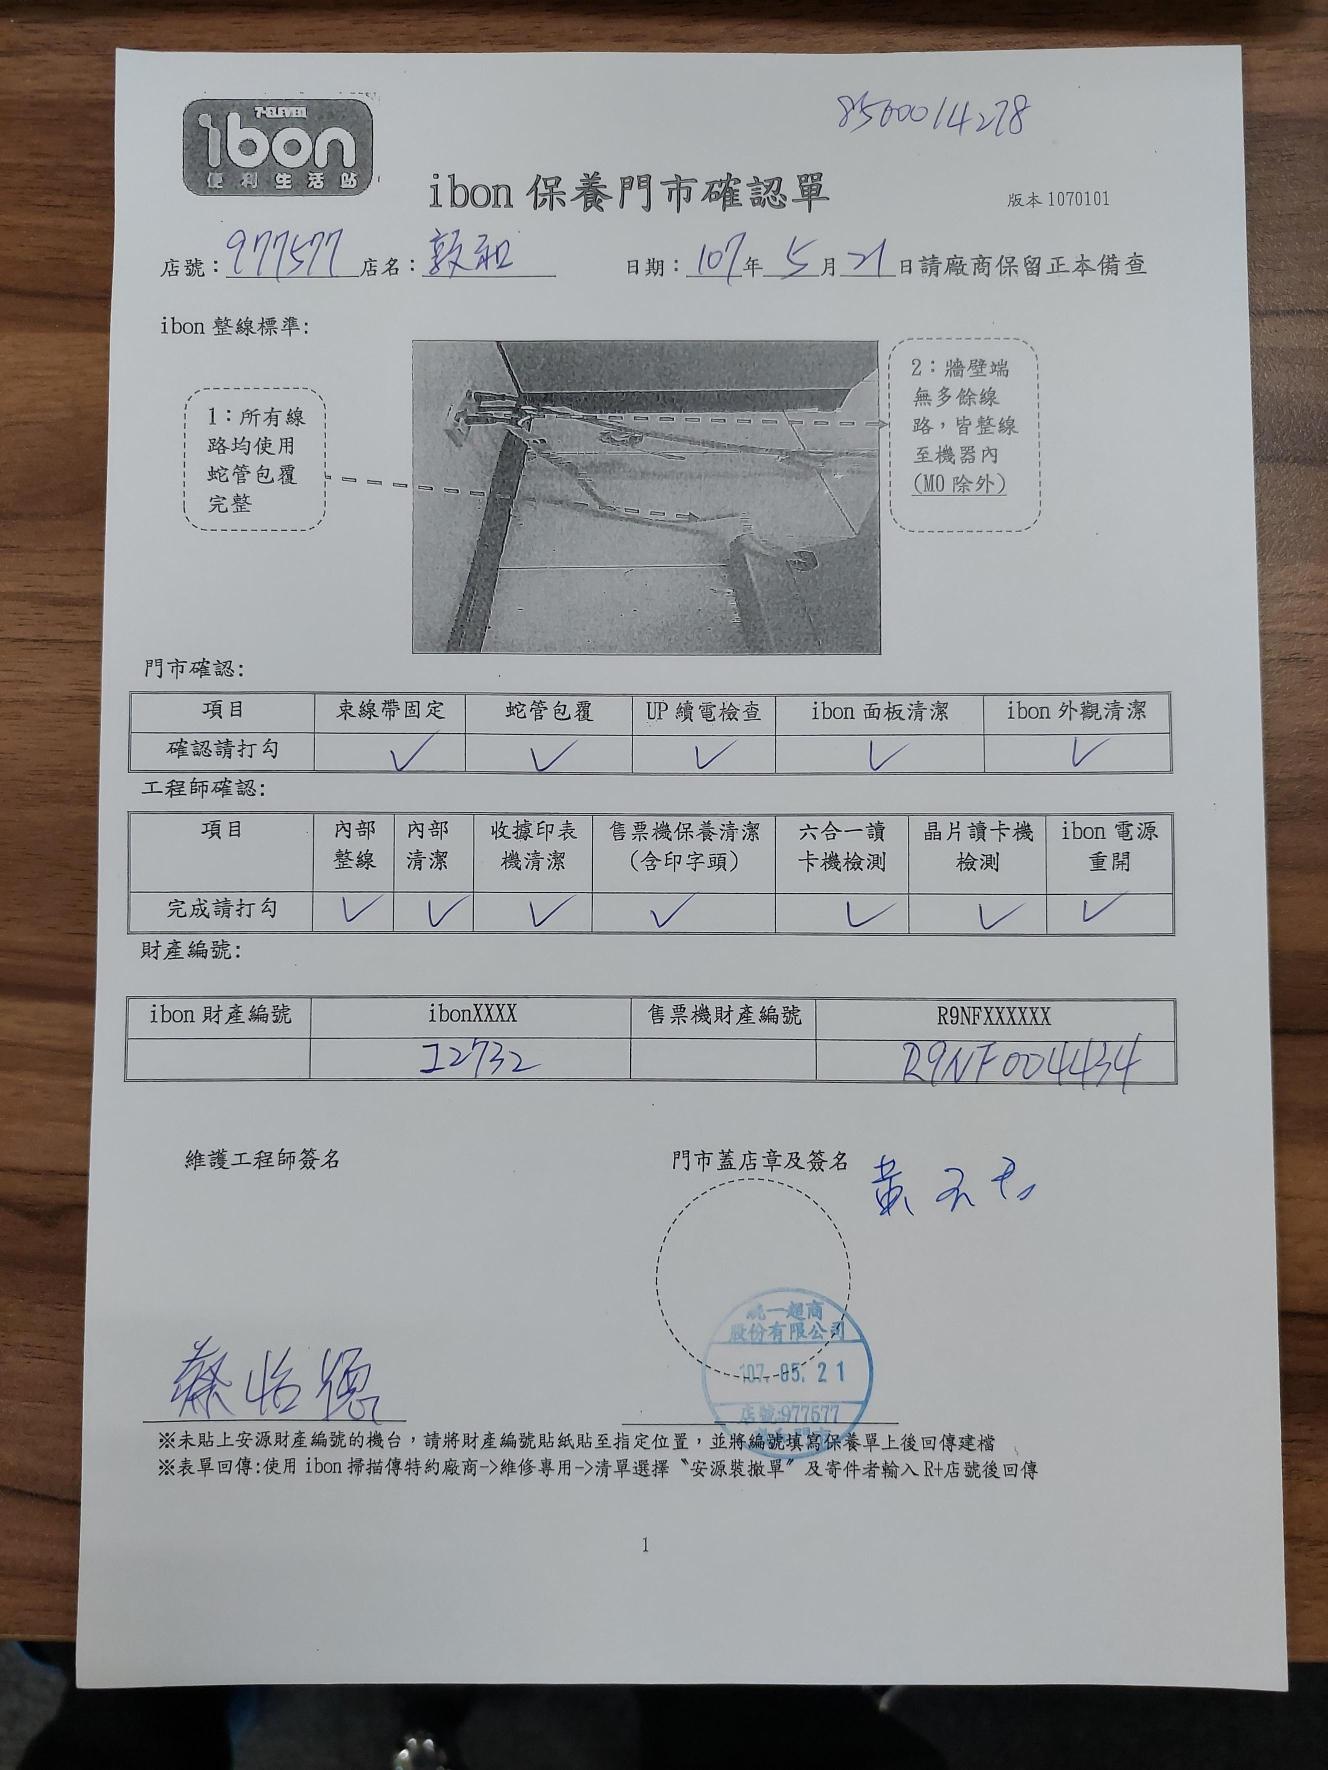 8500014278
7-ELEVEN
ibon
便利生活站
ibon 保養門市確認單
版本 1070101
店號：977577 店名：敦和 日期：107年5月21日請廠商保留正本備查
ibon 整線標準:
1：所有線
路均使用
蛇管包覆
完整
2：牆壁端
無多餘線
路，皆整線
至機器內
(MO 除外)
門市確認:
項目 束線帶固定 蛇管包覆 UP 續電檢查 ibon 面板清潔 ibon 外觀清潔
確認請打勾 ✓ ✓ ✓ ✓ ✓
工程師確認:
項目 內部整線 內部清潔 收據印表機清潔 售票機保養清潔(含印字頭) 六合一讀卡機檢測 晶片讀卡機檢測 ibon 電源重開
完成請打勾 ✓ ✓ ✓ ✓ ✓ ✓ ✓
財產編號:
ibon 財產編號 ibonXXXX 售票機財產編號 R9NFXXXXXX
I2732 R9NF004434
維護工程師簽名 門市蓋店章及簽名
黃
蔡怡德
統一超商
股份有限公司
107.05.21
店號:977577
※未貼上安源財產編號的機台，請將財產編號貼紙貼至指定位置，並將編號填寫保養單上後回傳建檔
※表單回傳:使用 ibon 掃描傳特約廠商->維修專用->清單選擇〝安源裝撤單〞及寄件者輸入 R+店號後回傳
1